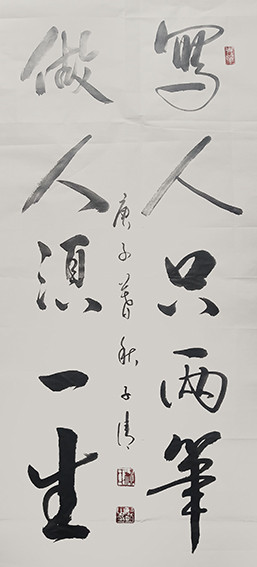 寫人只兩筆
做人須一生
庚子暮秋子清